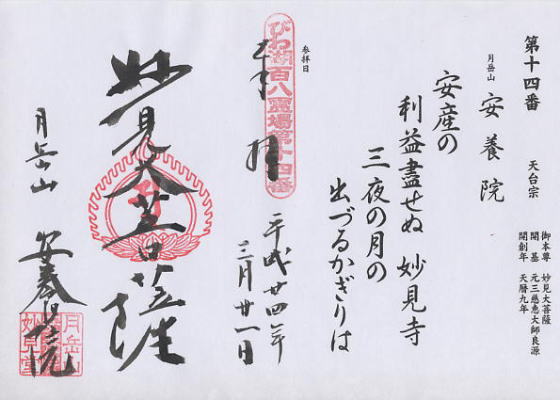 第十四番
天台宗
御本尊 妙見大菩薩
開基 元三慈恵大師良源
開創年 天暦九年
月岳山 安養院
安産の
利益盡せぬ 妙見寺
三夜の月の
出づるかぎりは
参拝日
びわ湖百八霊場第十四番
奉拝
平成廿四年
三月廿一日
妙見大菩薩
月岳山 安養院
月岳山
妙見堂